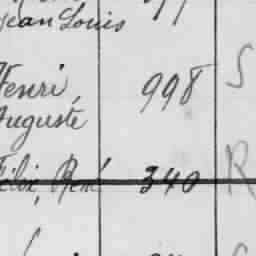 Jean Louis
Henri, 998 S
Auguste
Félix, René 340 R